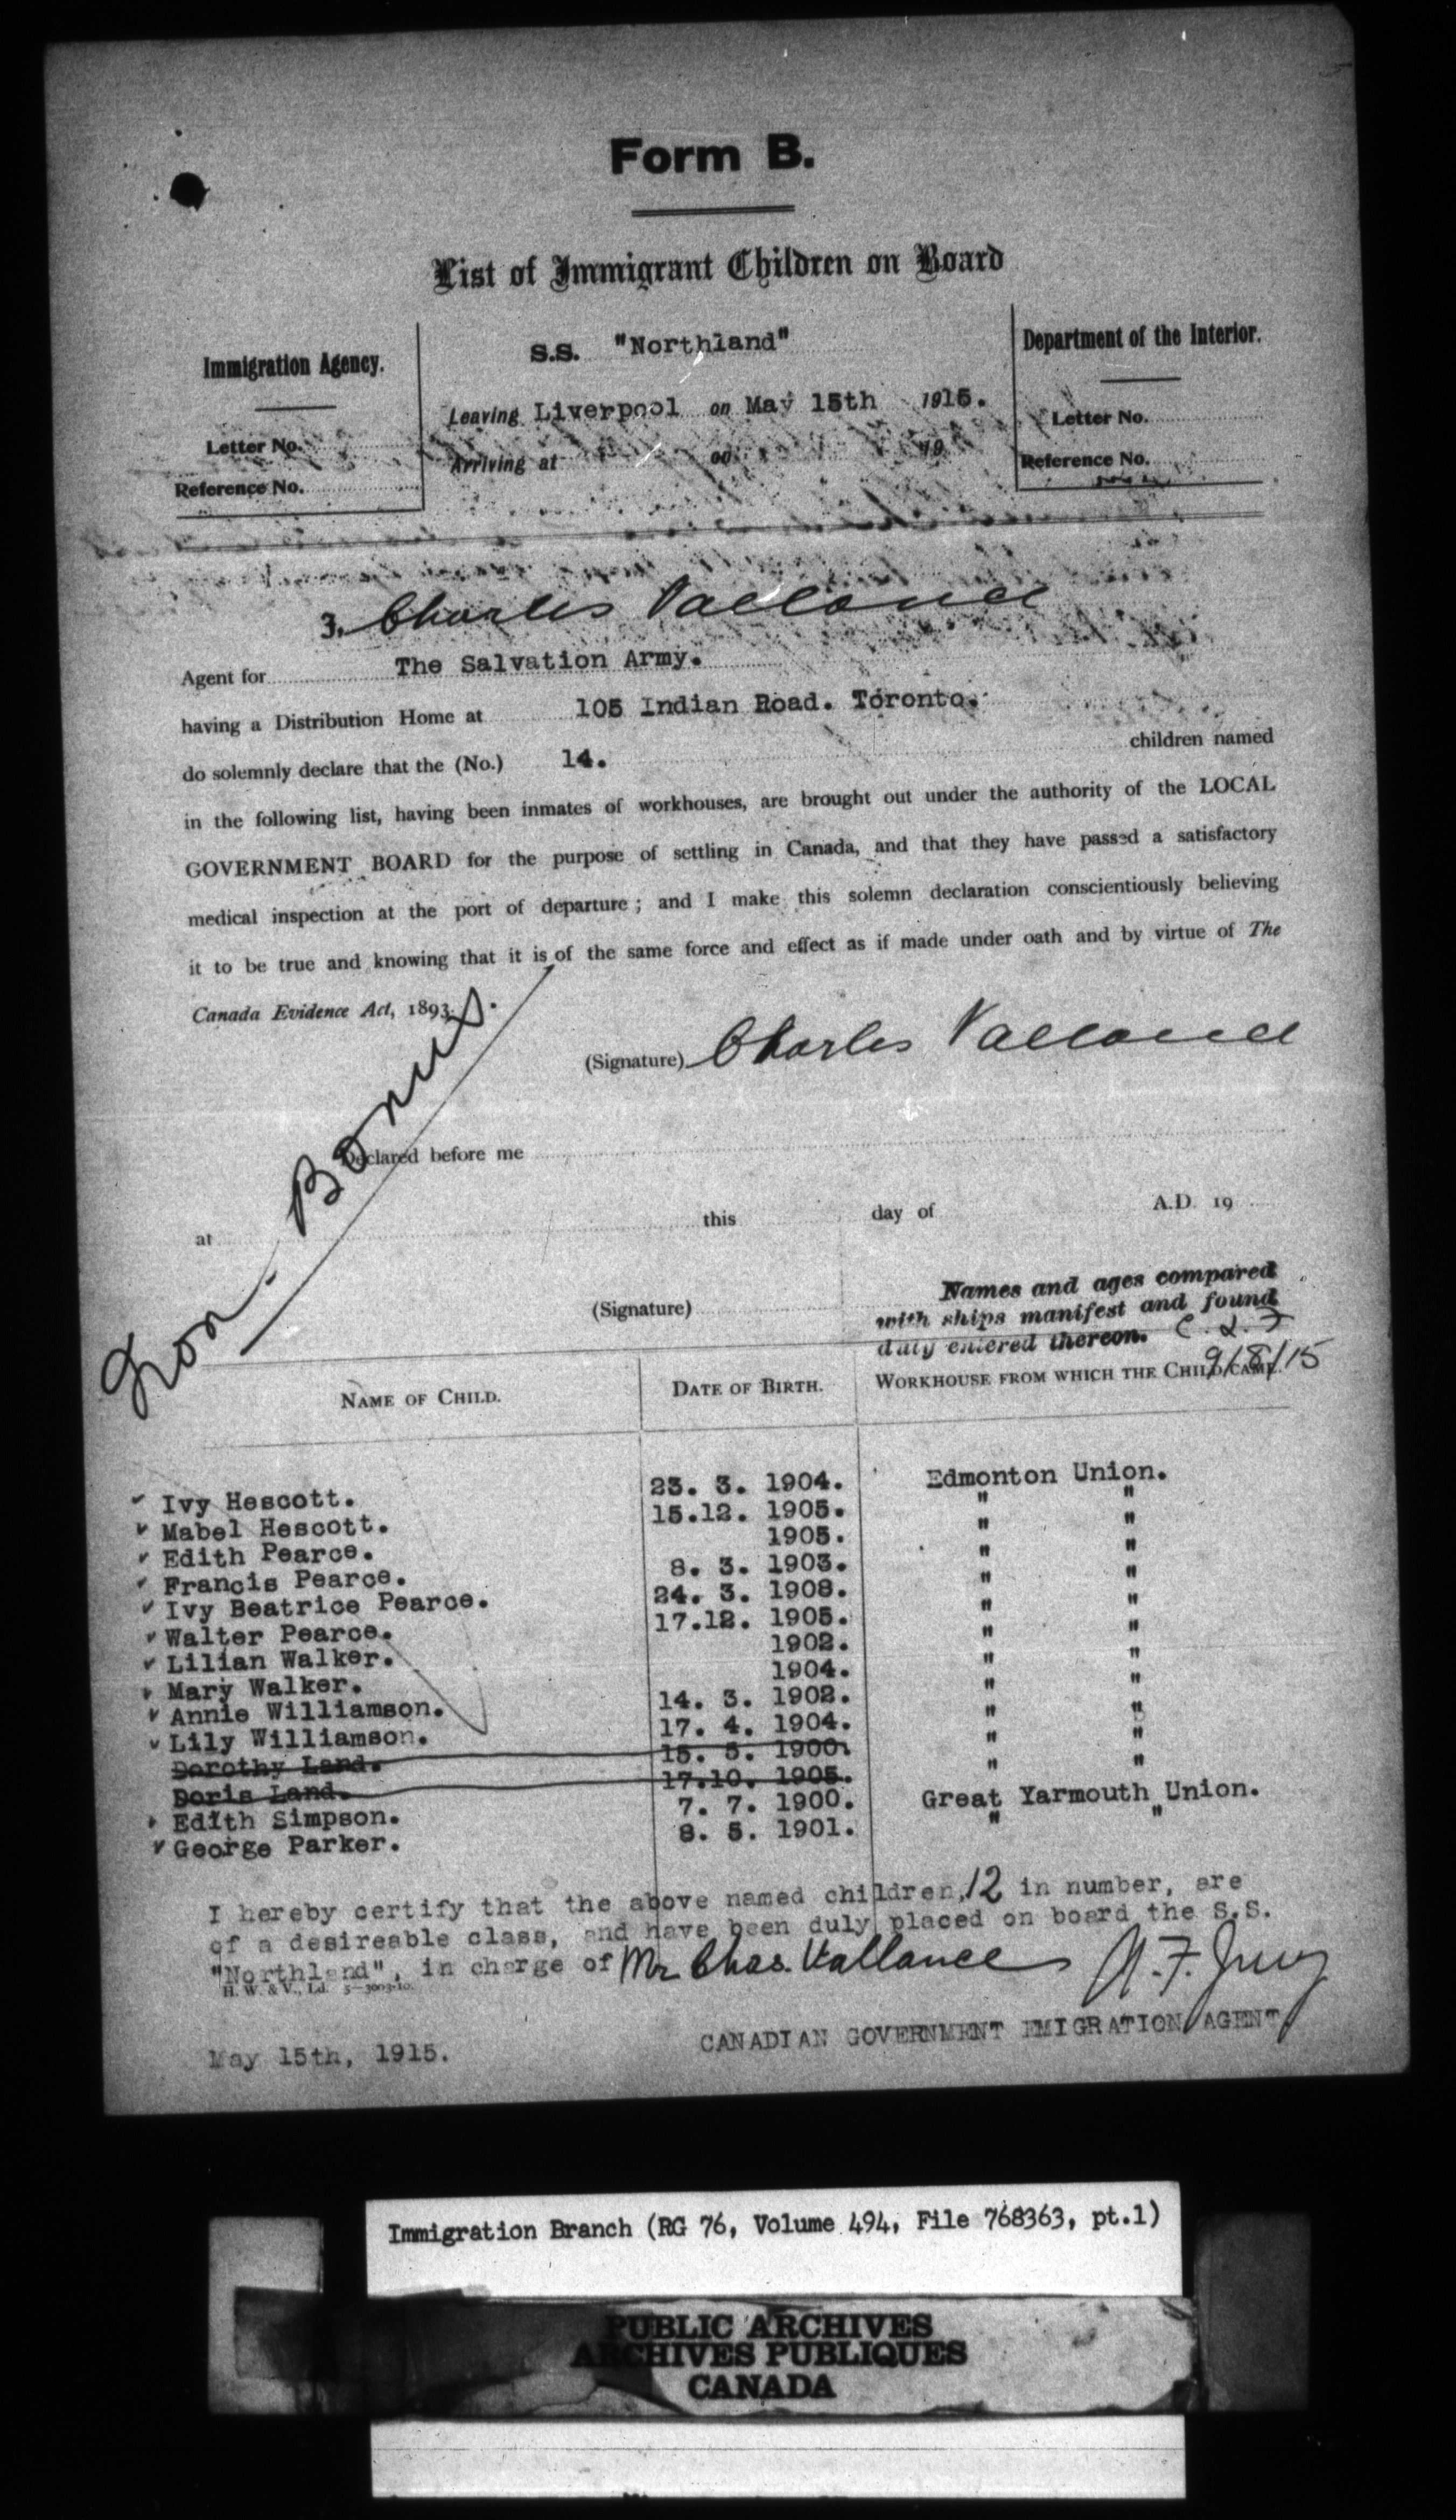 Form B.
List of Immigrant Children on Board
Immigration Agency.
Letter No.
Reference No.
S.S. "Northland"
Leaving Liverpool on May 15th 1915.
Arriving at on 19
Department of the Interior.
Letter No.
Reference No.
3. Charles Vallance
Agent for The Salvation Army.
having a Distribution Home at 105 Indian Road. Toronto.
do solemnly declare that the (No.) 14. children named
in the following list, having been inmates of workhouses, are brought out under the authority of the LOCAL
GOVERNMENT BOARD for the purpose of settling in Canada, and that they have passed a satisfactory
medical inspection at the port of departure; and I make this solemn declaration conscientiously believing
it to be true and knowing that it is of the same force and effect as if made under oath and by virtue of The
Canada Evidence Act, 1893.
(Signature) Charles Vallance
Non-Bonus.
Declared before me
at this day of A.D. 19
(Signature)
Names and ages compared
with ships manifest and found
duly entered thereon.
9/8/15
NAME OF CHILD. DATE OF BIRTH. WORKHOUSE FROM WHICH THE CHILD CAME.
Ivy Hescott. 23. 3. 1904. Edmonton Union.
Mabel Hescott. 15.12. 1905. " "
Edith Pearce. 1905. " "
Francis Pearce. 8. 3. 1903. " "
Ivy Beatrice Pearce. 24. 3. 1908. " "
Walter Pearce. 17.12. 1905. " "
Lilian Walker. 1902. " "
Mary Walker. 1904. " "
Annie Williamson. 14. 3. 1902. " "
Lily Williamson. 17. 4. 1904. " "
Dorothy Land. 15. 5. 1900. " "
Doris Land. 17.10. 1905. " "
Edith Simpson. 7. 7. 1900. Great Yarmouth Union.
George Parker. 8. 5. 1901. " "
I hereby certify that the above named children, 12 in number, are
of a desireable class, and have been duly placed on board the S.S.
"Northland", in charge of Mr Chas. Vallance
H. W. & V., Ld. 5-3003-10.
CANADIAN GOVERNMENT EMIGRATION AGENT
May 15th, 1915.
Immigration Branch (RG 76, Volume 494, File 768363, pt.1)
PUBLIC ARCHIVES
ARCHIVES PUBLIQUES
CANADA